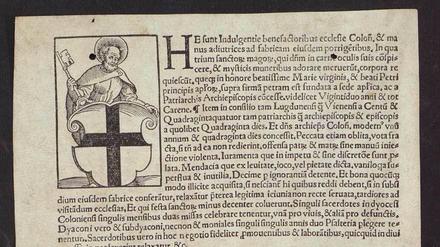 HE sunt Indulgentie benefactoribus ecclesie Coloñ, & ma
nus adiutrices ad fabricam eiusdem porrigētibus, In qua
trium sanctoȝ magoȝ, qui dñm in carne oculis suis cōspi-
cere, & mysticis muneribus adorare meruerūt, corpora re
quiescūt, queq; in honore beatissime Marie virginis, & beati Petri
principis apľoȝ, supra firmā petram est fundata a sede apľica, ac a
Patriarchis Archiepiscopis cōcesse, videlicet Viginti duo anni & tot
Carene. ¶ Item in consilio tam Lugdunenȿ q̃ Vienenȿ a Centū &
Quadragintaquatuor tam patriarchis q̃ archiepiscopis & episcopis
a quolibet Quadraginta dies. Et dñs archiepȿ Coloñ. modernꝰ vnū
annum & quadraginta dies concessit, Peccata etiam oblita, vota fra
cta, si tñ ad ea non redierint, offensa patrȿ & matrȿ sine manuū inie-
ctione violenta, Iuramenta que in impetu & sine discretōe sunt p
lata. Mendacia que ex leuitate, ioco, vel pietate dicta, vanilo q̃a su-
perflua & inutilia, Decime p ignorantiā detente, Et bona quocūq;
modo illicite acquisita, si nesciant hi quibus reddi debent, si in subsi
dium eiusdem fabrice conferātur, relaxātur
visitādum ecclesias, Et qui festa sanctoȝ minus decenter coluerunt. Singuli sacerdotes in dyocesi
Coloniensi singulis mensibus duas missas celebrare tenentur, vnā pro viuis, & aliā pro defunctis,
Dyaconi vero & subdyaconi, necnon & moniales singulis annis duo Psalteria plegere te-
nentur. Sacerdotibus vero in hoc negotio fideliter ,pmouentibus & laborātibus, quicquid in diui